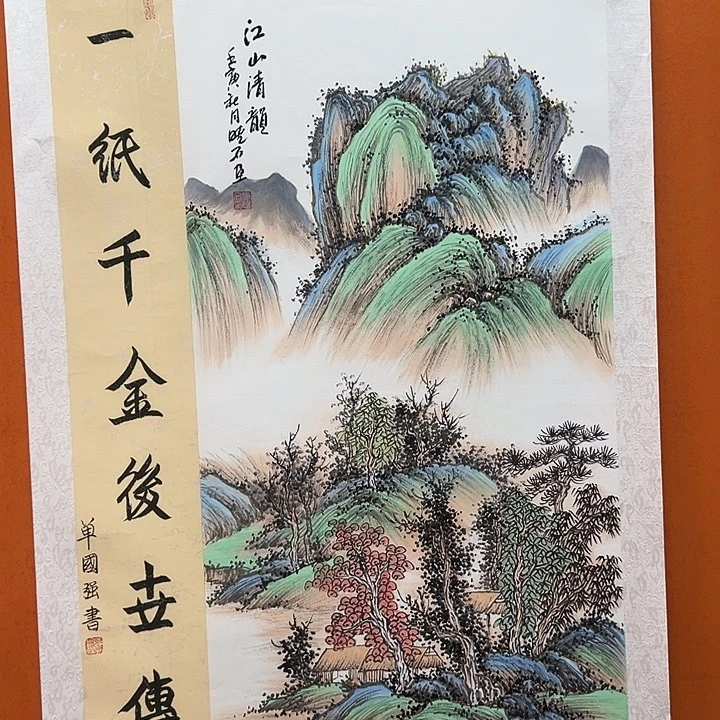 江山清韻
壬寅秋月曉石画
一紙千金後世傳
单國强書